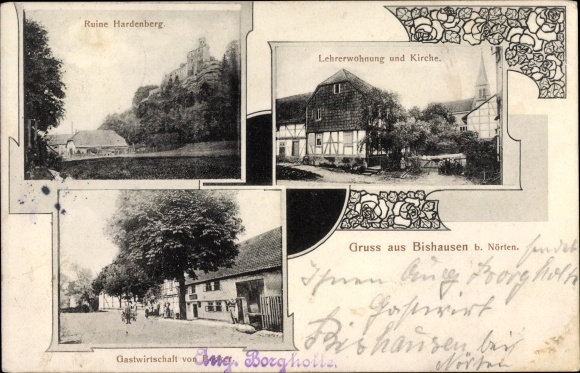 Ruine Hardenberg.
Lehrerwohnung und Kirche.
Gruss aus Bishausen b. Nörten.
sendet
Ihnen Aug Borgholte
Gastwirt
Bishausen bei
Nörten
Gastwirtschaft von
Aug. Borgholte.